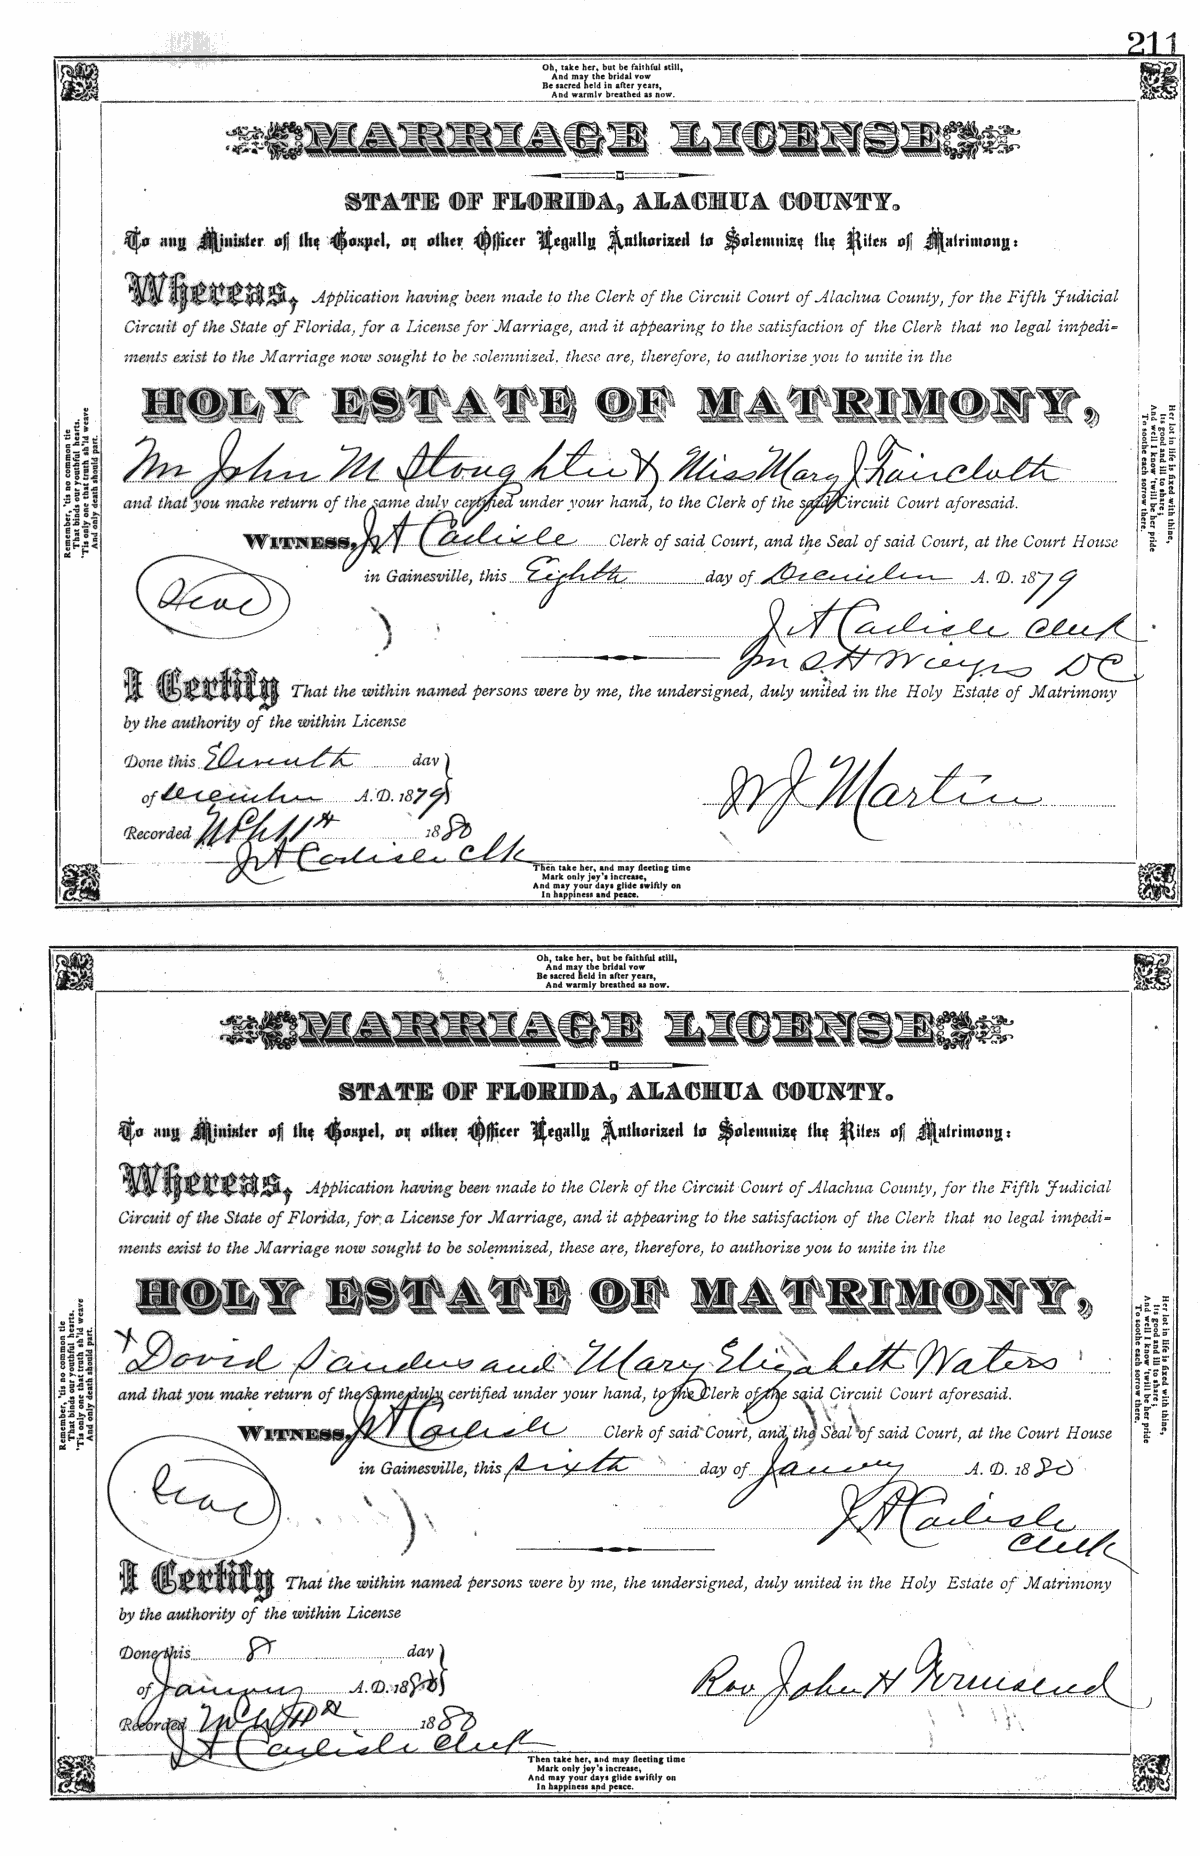 211
Oh, take her, but be faithful still,
And may the bridal vow
Be sacred held in after years,
And warmly breathed as now.
MARRIAGE LICENSE
STATE OF FLORIDA, ALACHUA COUNTY.
To any Minister of the Gospel, or other Officer Legally Authorized to Solemnize the Rites of Matrimony:
Whereas, Application having been made to the Clerk of the Circuit Court of Alachua County, for the Fifth Judicial
Circuit of the State of Florida, for a License for Marriage, and it appearing to the satisfaction of the Clerk that no legal impedi-
ments exist to the Marriage now sought to be solemnized, these are, therefore, to authorize you to unite in the
HOLY ESTATE OF MATRIMONY,
Mr John M Stoughter & Miss Mary J Faircloth
and that you make return of the same duly certified under your hand, to the Clerk of the said Circuit Court aforesaid.
WITNESS, J A Carlisle Clerk of said Court, and the Seal of said Court, at the Court House
in Gainesville, this Eighth day of December A. D. 1879
Seal
J A Carlisle Clerk
S H DC
I Certify That the within named persons were by me, the undersigned, duly united in the Holy Estate of Matrimony
by the authority of the within License
Done this Eleventh day
of December A.D. 1879
W J Martin
Recorded 11th 1880
J A Carlisle Clk
Then take her, and may fleeting time
Mark only joy's increase,
And may your days glide swiftly on
In happiness and peace.
Remember, 'tis no common tie
That binds our youthful hearts.
'Tis only one that truth sh'ld weave
And only death should part.
Her lot in life is fixed with thine,
Its good and ill to share;
And well I know 'twill be her pride
To soothe each sorrow there.
Oh, take her, but be faithful still,
And may the bridal vow
Be sacred held in after years,
And warmly breathed as now.
MARRIAGE LICENSE
STATE OF FLORIDA, ALACHUA COUNTY.
To any Minister of the Gospel, or other Officer Legally Authorized to Solemnize the Rites of Matrimony:
Whereas, Application having been made to the Clerk of the Circuit Court of Alachua County, for the Fifth Judicial
Circuit of the State of Florida, for a License for Marriage, and it appearing to the satisfaction of the Clerk that no legal impedi-
ments exist to the Marriage now sought to be solemnized, these are, therefore, to authorize you to unite in the
HOLY ESTATE OF MATRIMONY,
x David Sanders and Mary Elizabeth Waters
and that you make return of the same duly certified under your hand, to the Clerk of the said Circuit Court aforesaid.
WITNESS, J A Carlisle Clerk of said Court, and the Seal of said Court, at the Court House
in Gainesville, this sixth day of January A. D. 1880
Seal
J A Carlisle
Clerk
I Certify That the within named persons were by me, the undersigned, duly united in the Holy Estate of Matrimony
by the authority of the within License
Done this 8 day
of January A.D. 1880
Rev John H Townsend
Recorded 1880
J A Carlisle Clerk
Then take her, and may fleeting time
Mark only joy's increase,
And may your days glide swiftly on
In happiness and peace.
Remember, 'tis no common tie
That binds our youthful hearts.
'Tis only one that truth sh'ld weave
And only death should part.
Her lot in life is fixed with thine,
Its good and ill to share;
And well I know 'twill be her pride
To soothe each sorrow there.